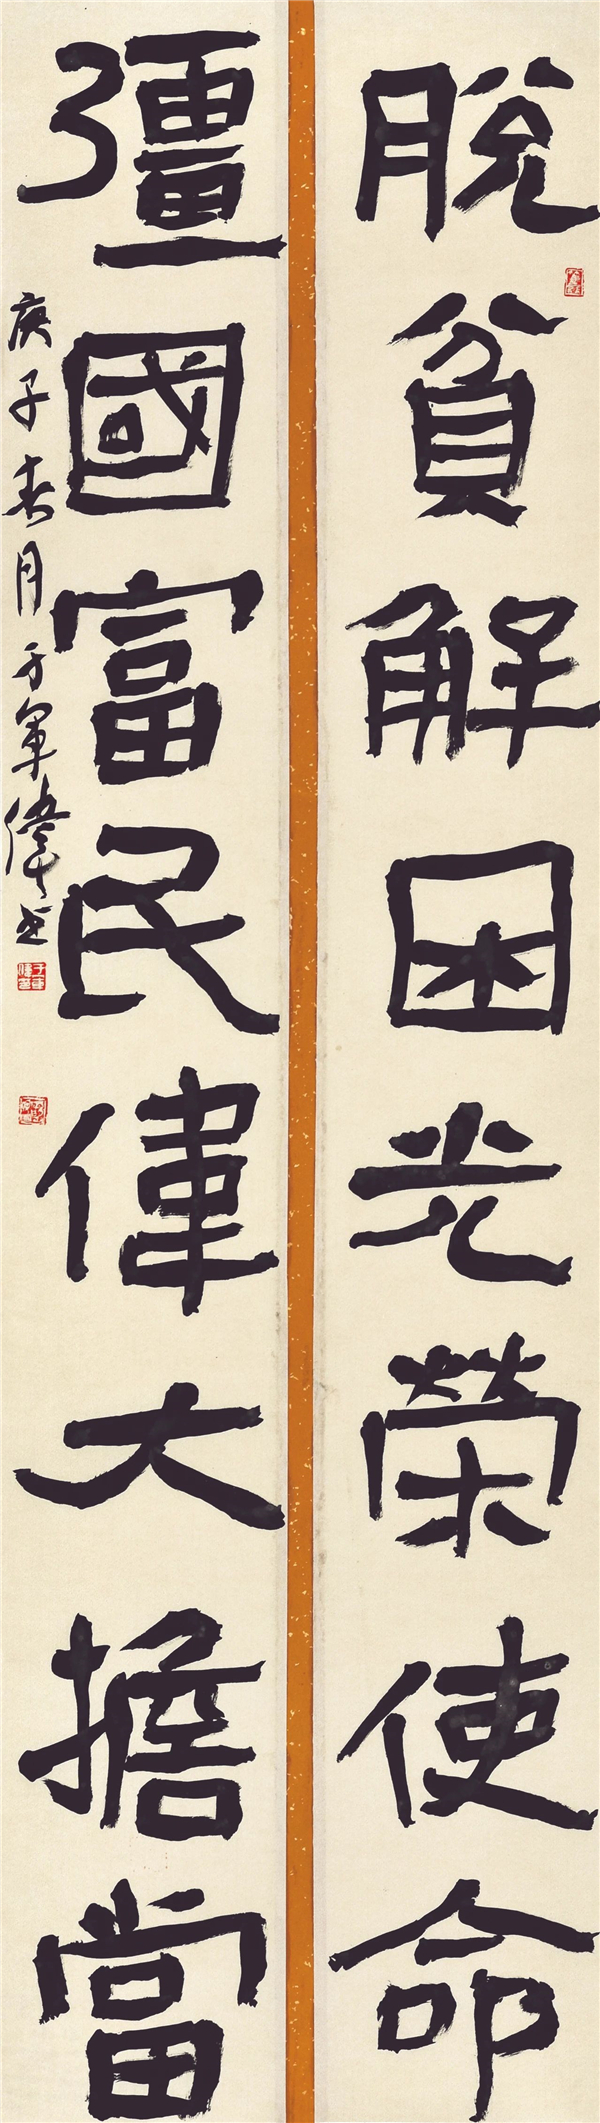 脱貧解困光榮使命
彊國富民偉大擔當
庚子春月于軍偉書